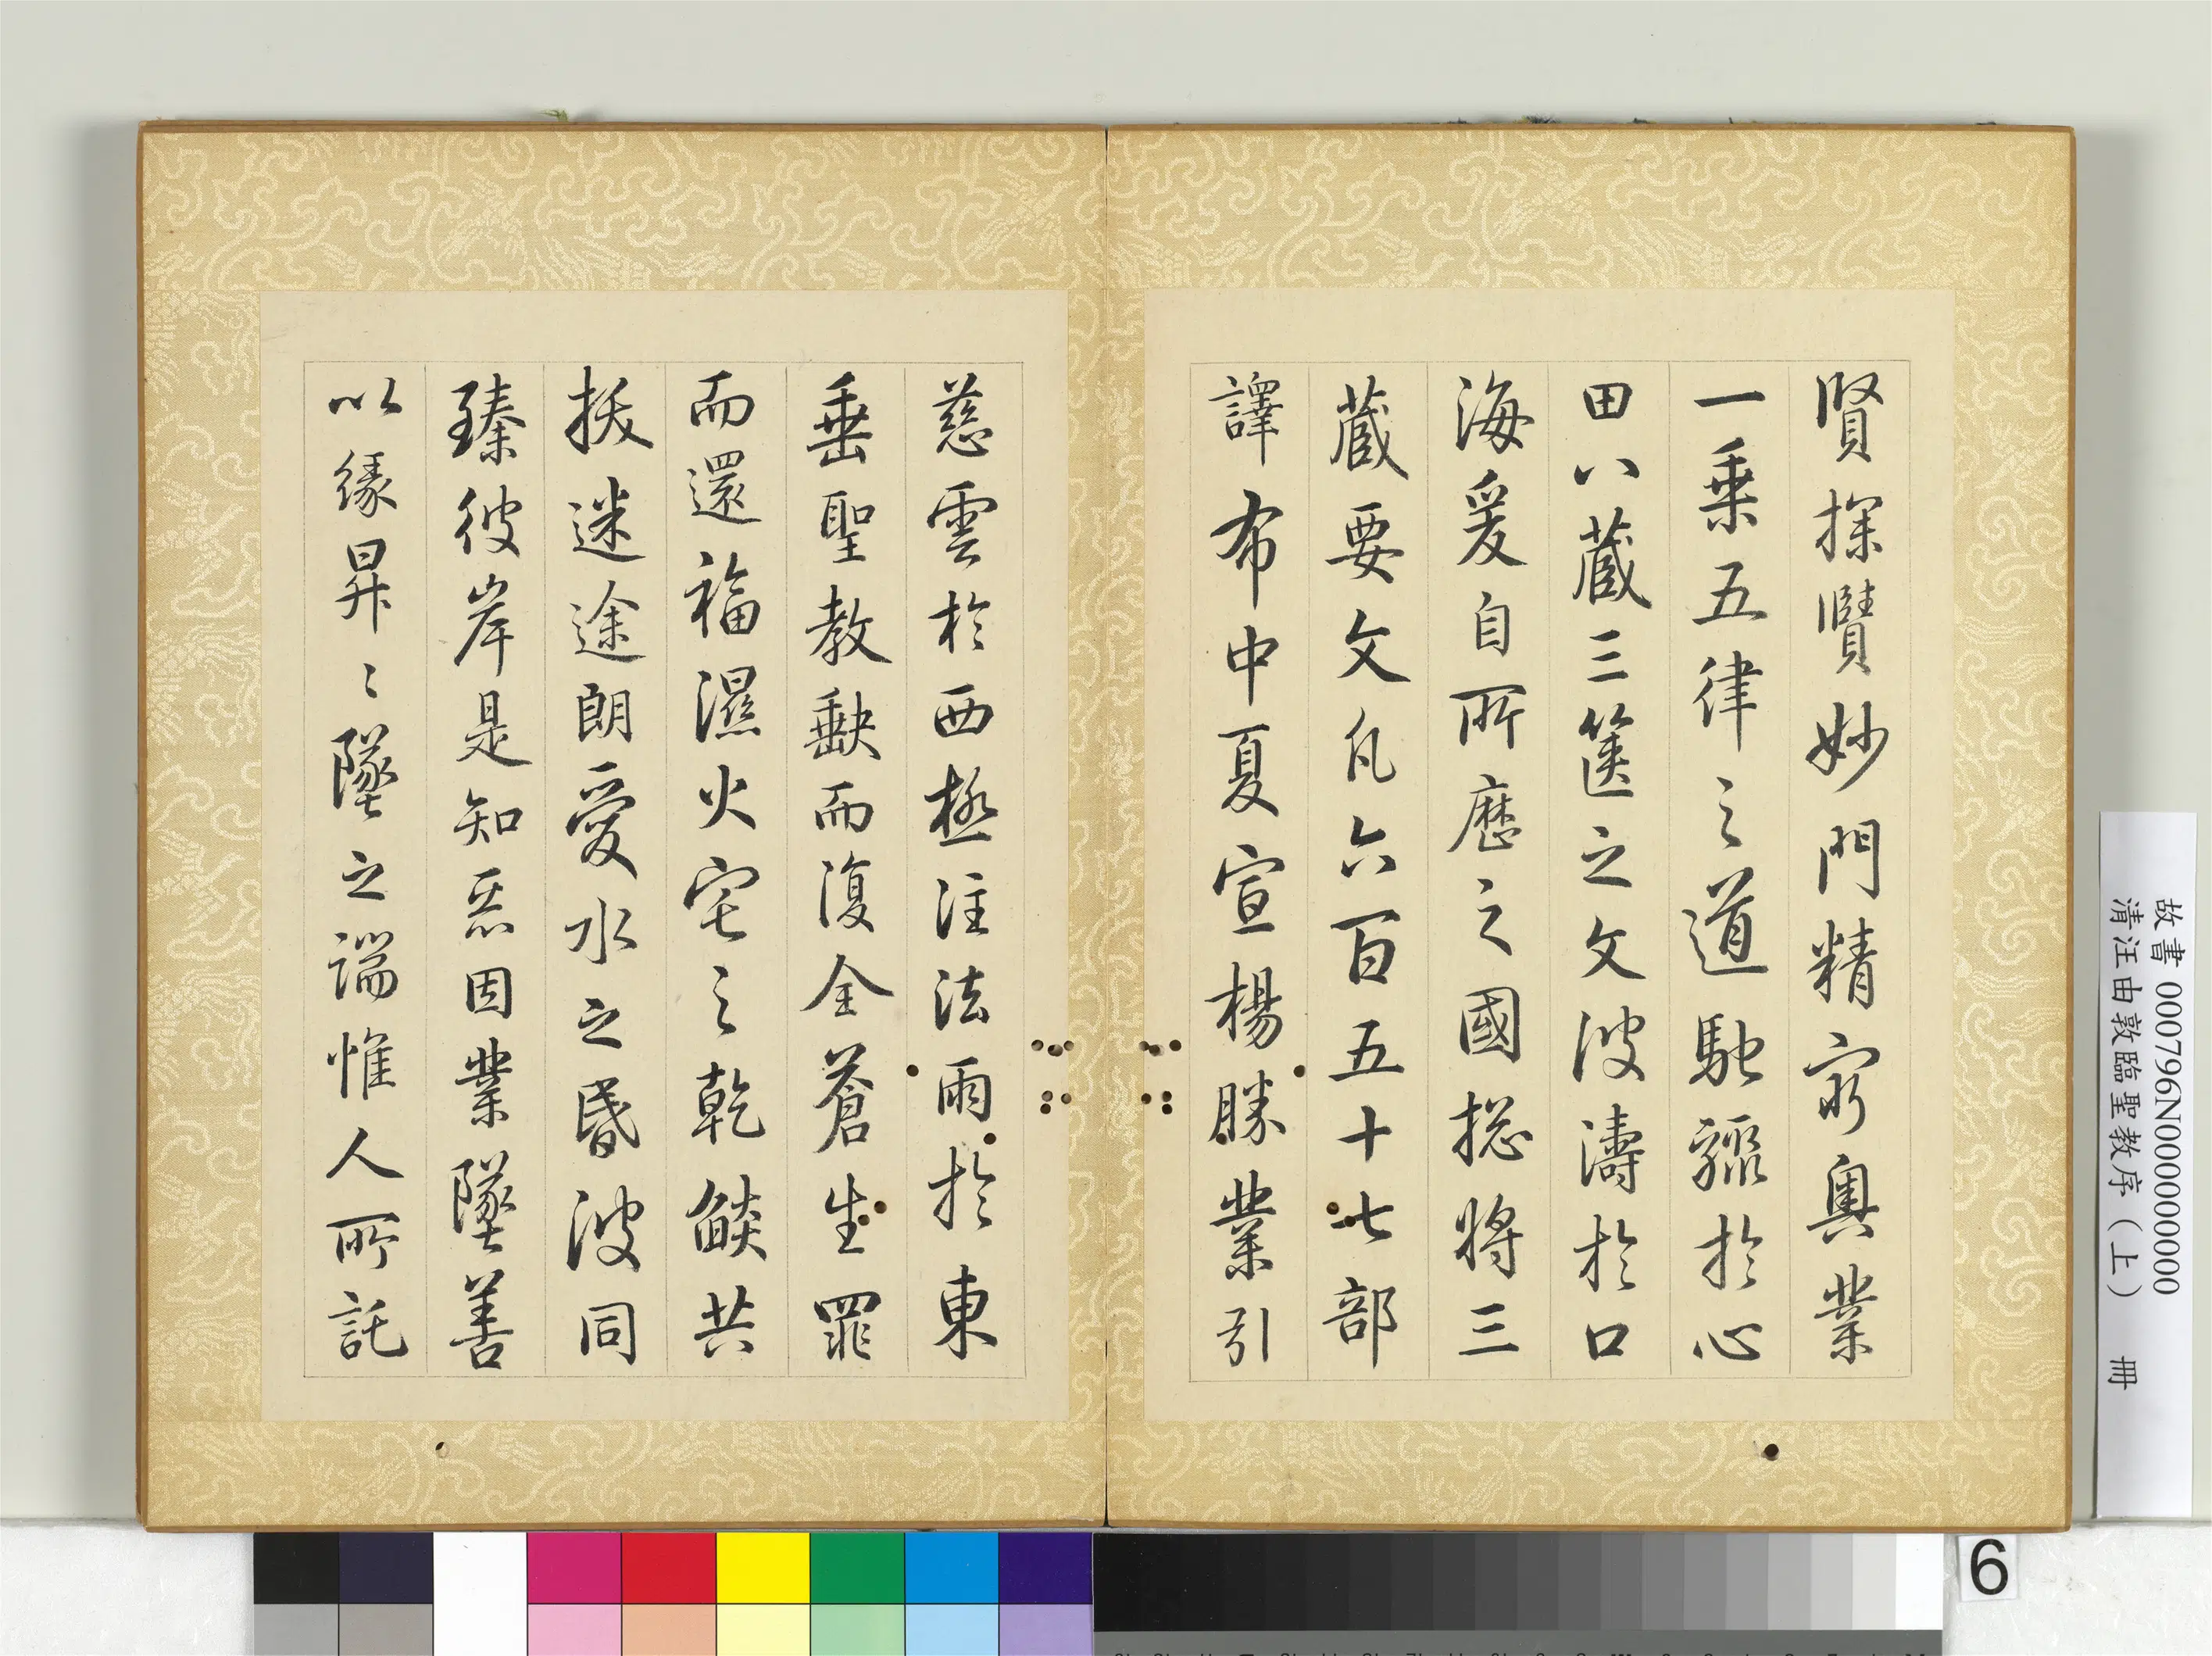 賢探賾妙門精窮奧業
一乗五律之道馳驟於心
田八蔵三篋之文波濤於口
海爰自所歷之國捴將三
蔵要文凡六百五十七部
譯布中夏宣楊勝業引
慈雲於西極注法雨於東
垂聖教缺而復全蒼生罪
而還福濕火宅之乾燄共
拔迷途朗愛水之昏波同
臻彼岸是知惡因業墜善
以緣昇〻墜之端惟人所託
故書 000796N000000000
清汪由敦臨聖教序（上） 冊
6